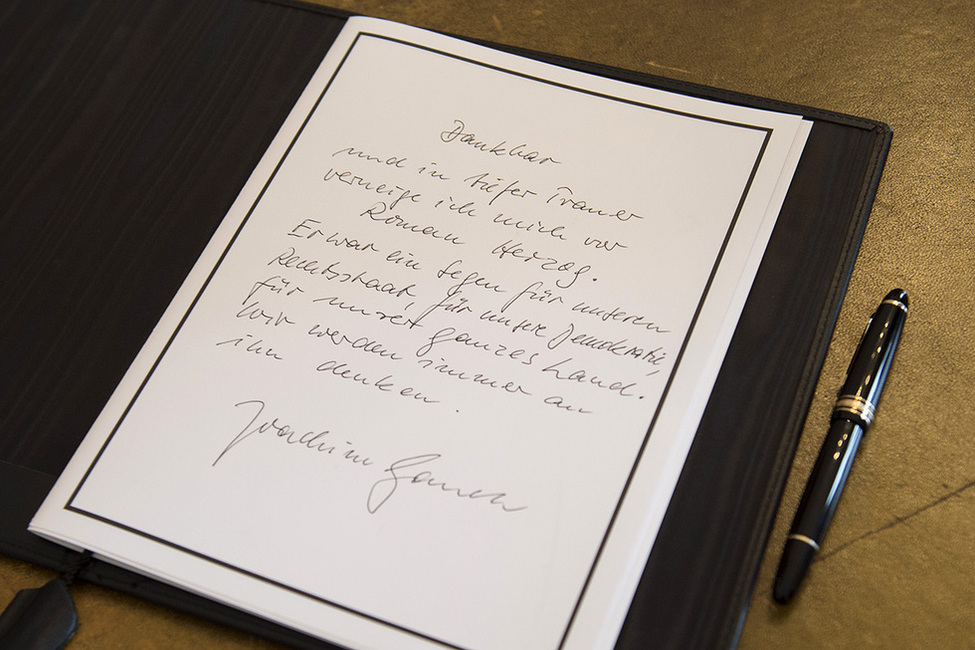 Dankbar
und in tiefer Trauer
verneige ich mich vor
Roman Herzog.
Er war ein Segen für unseren
Rechtsstaat, für unsere Demokratie,
für unser ganzes Land.
Wir werden immer an
ihn denken.
Joachim Gauck